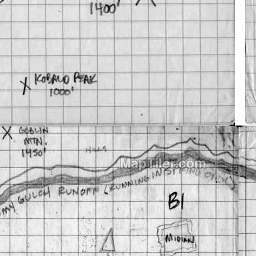 1400'
X KOBALD PEAK
1000'
X GOBLIN
MTN.
1450'
HILLS
MapTiler.com
MY GULCH RUNOFF (RUNNING IN SPRING ONLY)
B1
MIDIAN